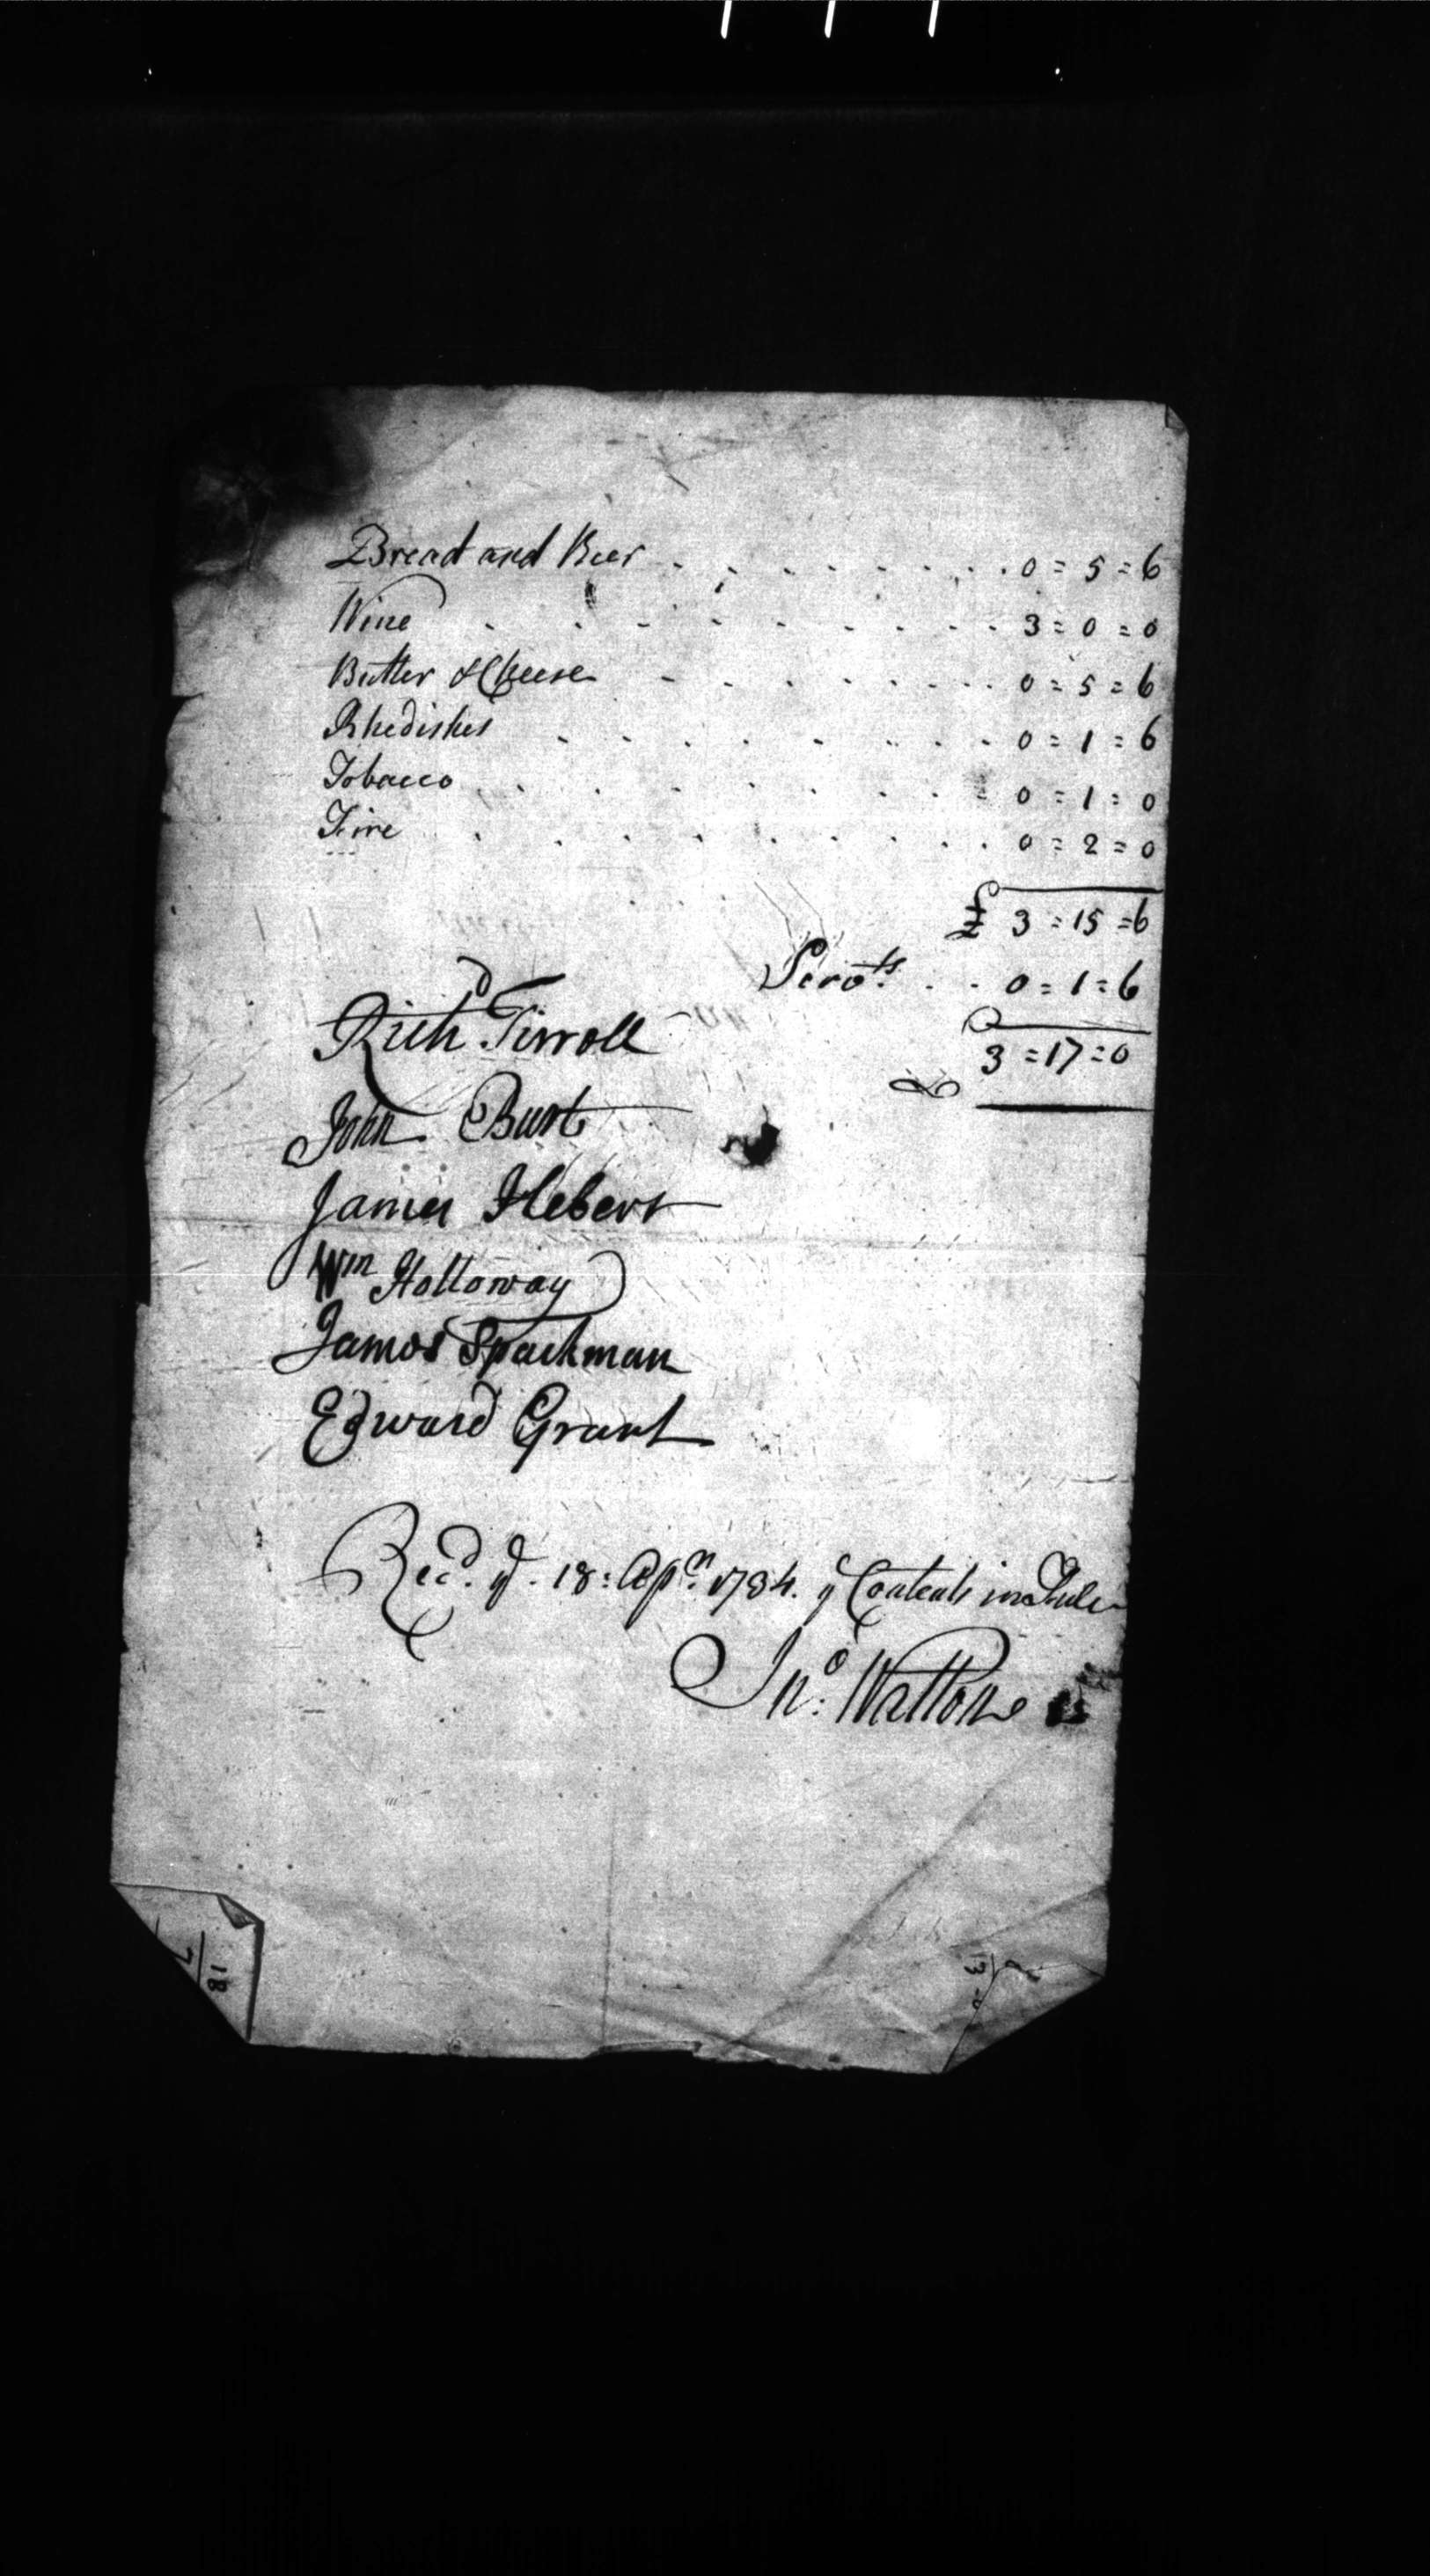 Bread and Beer . . . . . . . . . 0 = 5 = 6
Wine . . . . . . . . . . 3 = 0 = 0
Butter & Cheese - . . . . . . . . 0 = 5 = 6
Rhedishes . . . . . . . . . 0 = 1 = 6
Tobacco . . . . . . . . . 0 = 1 = 0
Fire . . . . . . . . . . 0 = 2 = 0
£ 3 = 15 = 6
Servts. . . 0 = 1 = 6
3 = 17 = 0
Richd Tirroll
John Burt
James Hebert
Wm Holloway
James Spackman
Edward Grant
Recd. ye. 18: Apll. 1734. ye Contents in Full
Jno. Watton